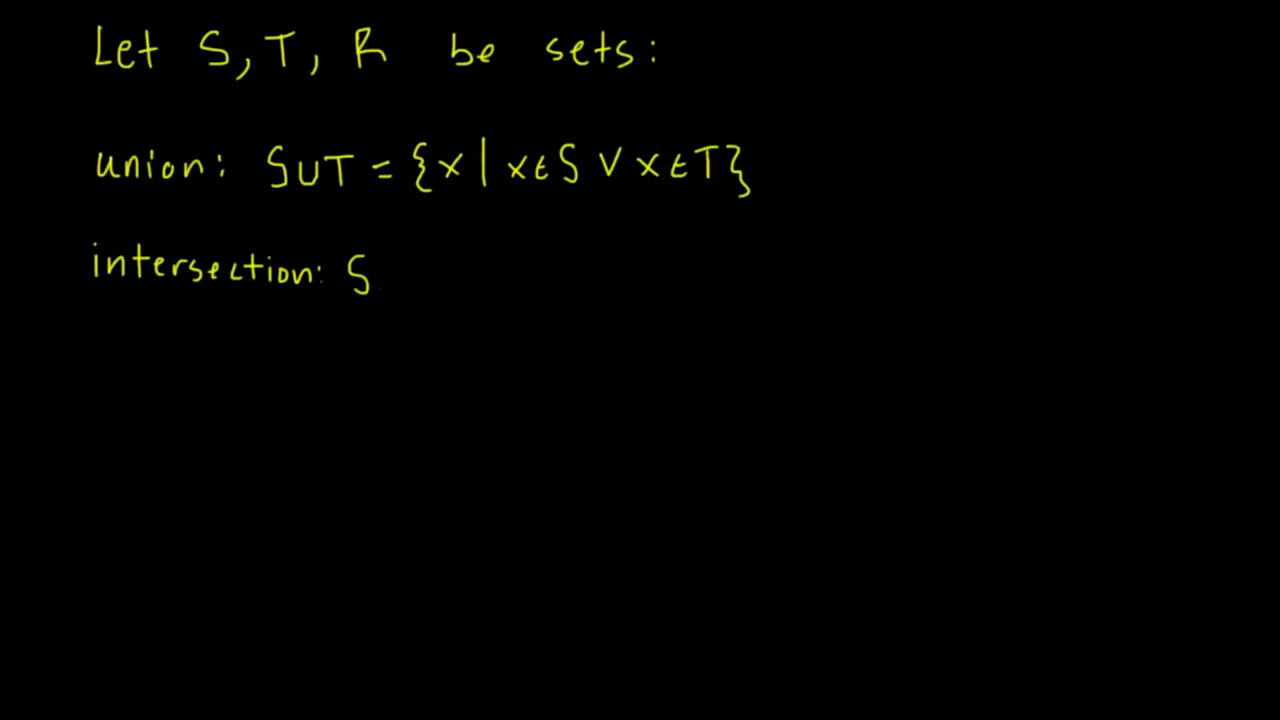 Let S, T, R be sets:
union: S∪T = {x | x∈S ∨ x∈T}
intersection: S